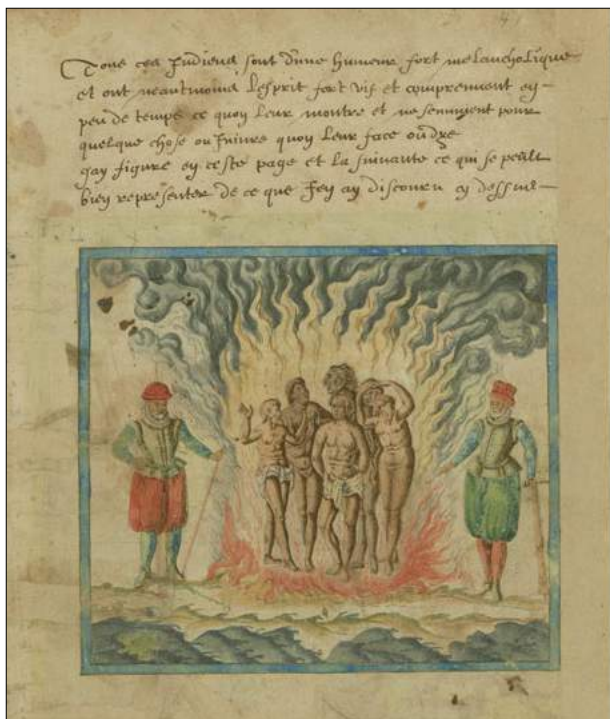 Tous ces Indiens sont dune humeur fort melancholique
et ont neantmoins lesprit fort vif et comprennent en
peu de temps ce quon leur monstre et ne sennuient pour
quelque chose ou quon leur face
jay figure en ceste page et la suivante ce qui se peult
bien representer de ce que jey ay discouru cy dessus